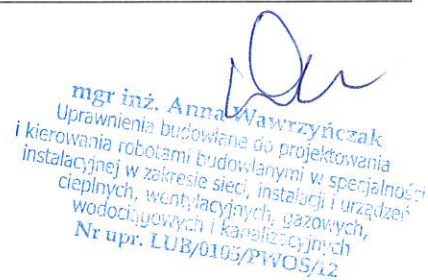 mgr inż. Anna Wawrzyńczak
Uprawnienia budowlane do projektowania
i kierowania robotami budowlanymi w specjalności
instalacyjnej w zakresie sieci, instalacji i urządzeń
cieplnych, wentylacyjnych, gazowych,
wodociągowych i kanalizacyjnych
Nr upr. LUB/0105/PWOS/12